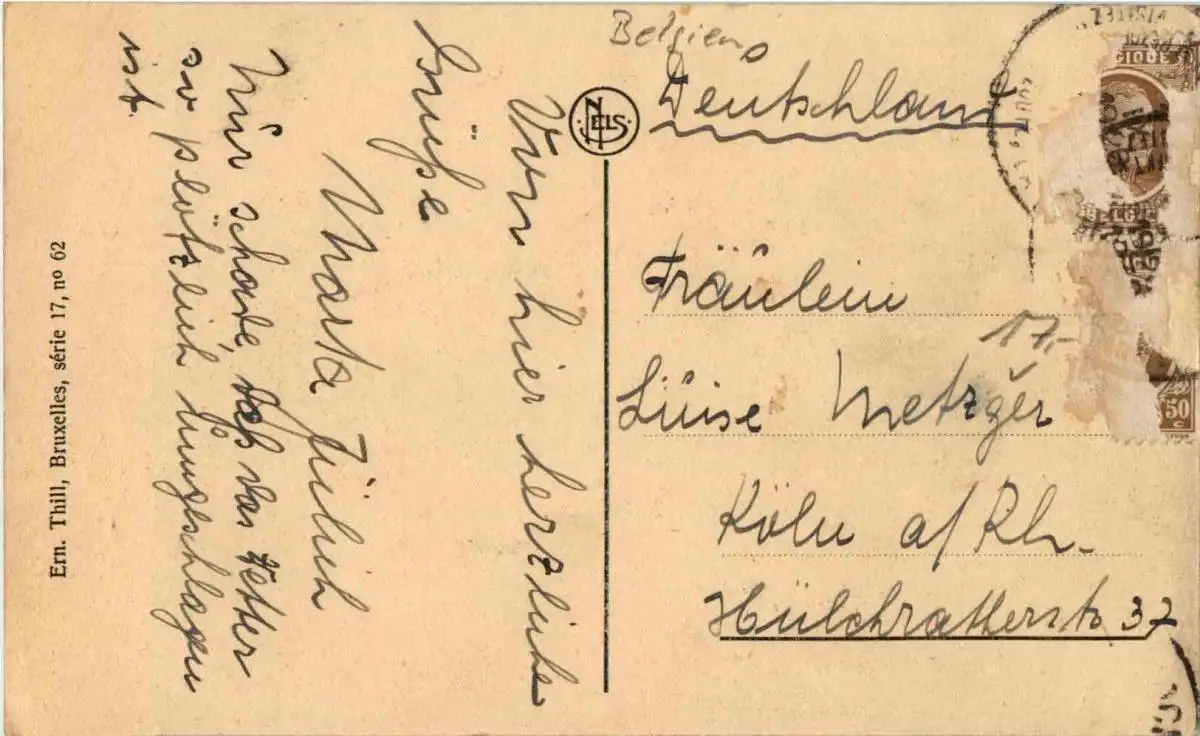 Von hier herzliche
Grüße
Marta Jülich
Nur schade, daß das Wetter
so plötzlich umgeschlagen
ist.
Ern. Thill, Bruxelles, série 17, nº 62
NELS
Belgien
Deutschland
Fräulein
17,-
Luise Metzger
Köln a/Rh.
Hülchratherstr. 37
BELGIQUE
BELGIË
50
c